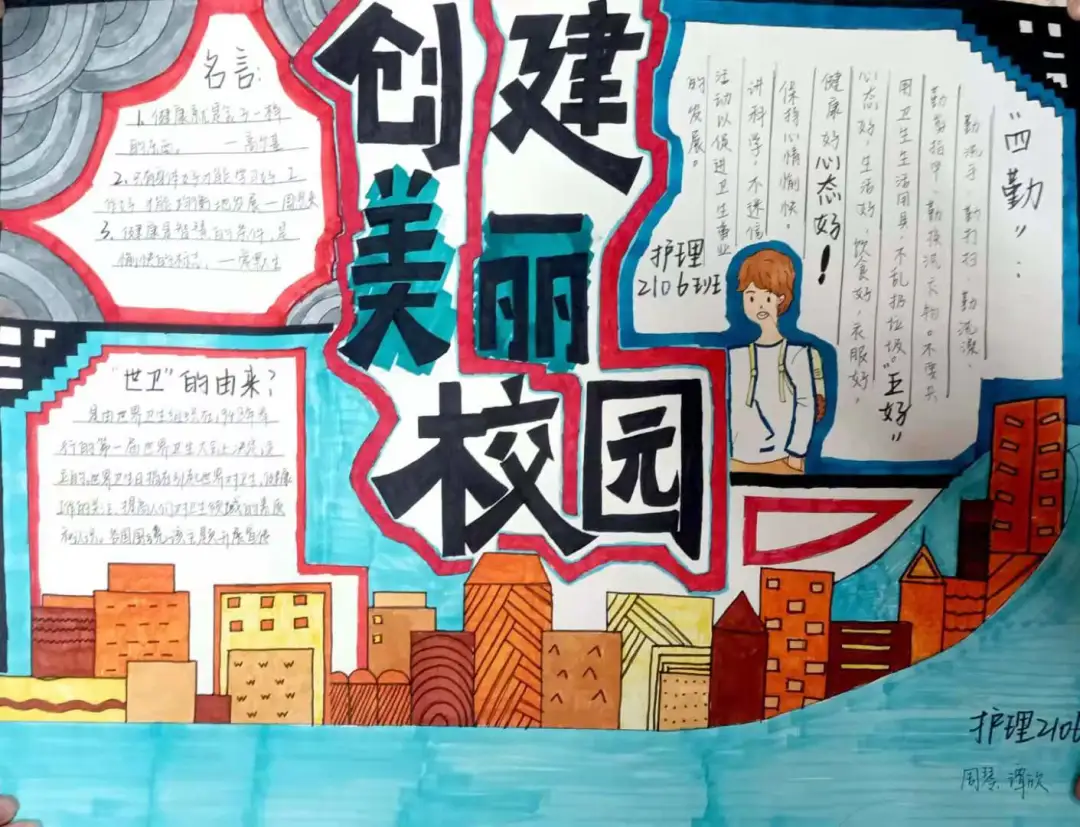 创建
美丽
校园
名言:
1、健康就是金子一样
的东西。 —高尔基
2、只有身体好才能学习好、工
作好,才能均衡地发展—周恩来
3、健康是智慧的条件,是
愉快的标志。—爱默生
"世卫"的由来?
是由世界卫生组织在1948年举
行的第一届世界卫生大会上决定设
立的,世界卫生日旨在引起世界对卫生、健康
工作的关注,提高人们对卫生领域的素质
和认识。各国围绕该主题开展宣传
"四勤":
勤洗手、勤打扫、勤洗澡、
勤剪指甲、勤换洗衣物。不要共
用卫生生活用具,不乱扔垃圾。"五好"
心态好,生活好,饮食好,衣服好,
健康好心态好!
保持心情愉快。
讲科学,不迷信
活动以促进卫生事业
的发展。
护理
2106班
护理2106
周琴 谭欣